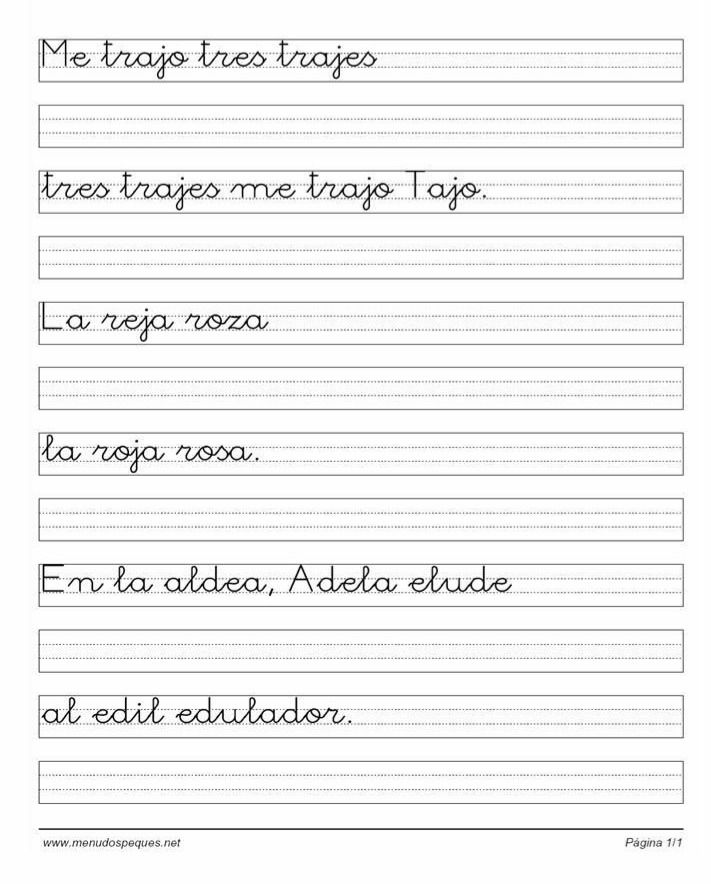 Me trajo tres trajes
tres trajes me trajo Tajo.
La reja roza
la roja rosa.
En la aldea, Adela elude
al edil edulador.
www.menudospeques.net Página 1/1